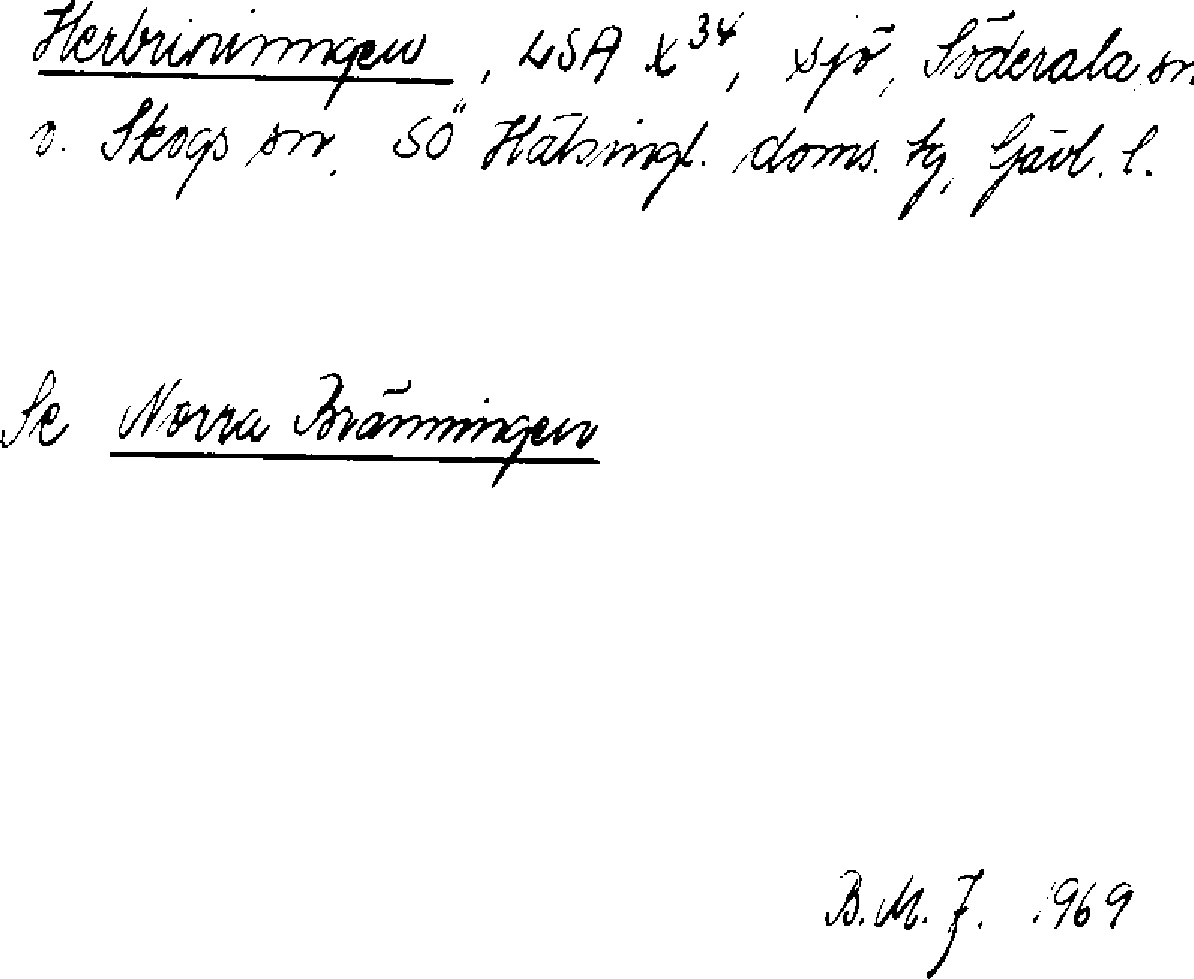 Herbrinningen, LSA X34, sjö, Söderala sn
o. Skogs sn. SÖ Hälsingl. doms. tg, Gävl. l.
Se Norra Bränningen
B.M.J. 1969